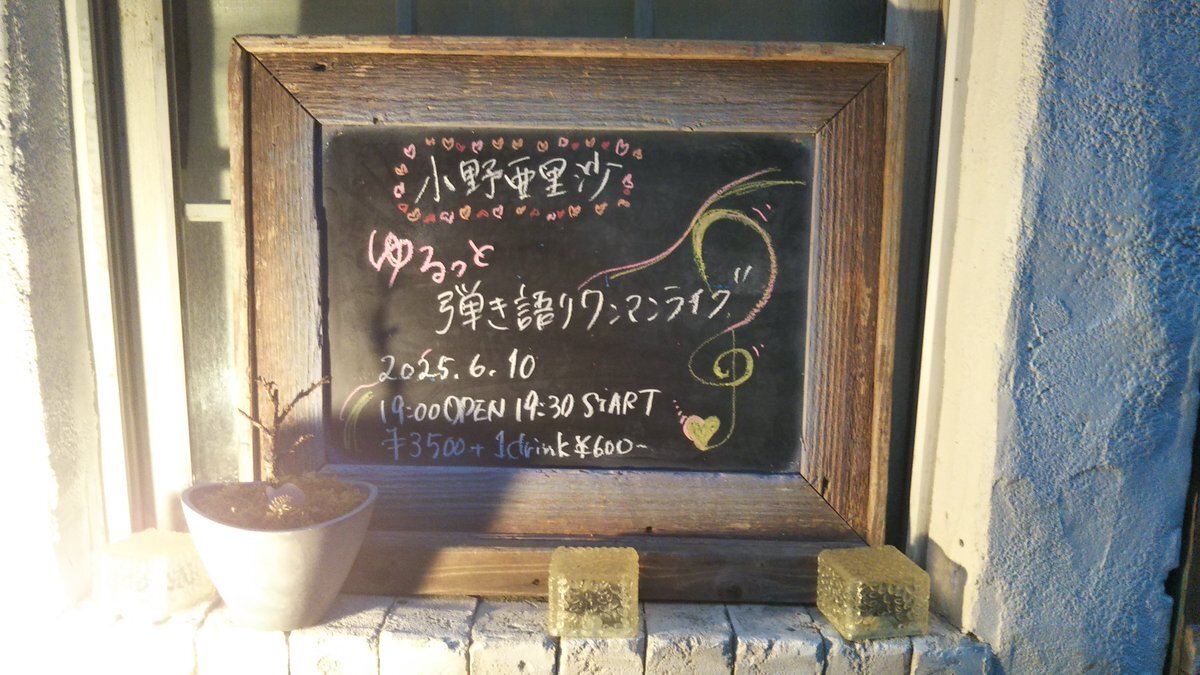 小野亜里沙
ゆるっと
弾き語りワンマンライブ
2025.6.10
19:00 OPEN 19:30 START
¥3500+1drink¥600~